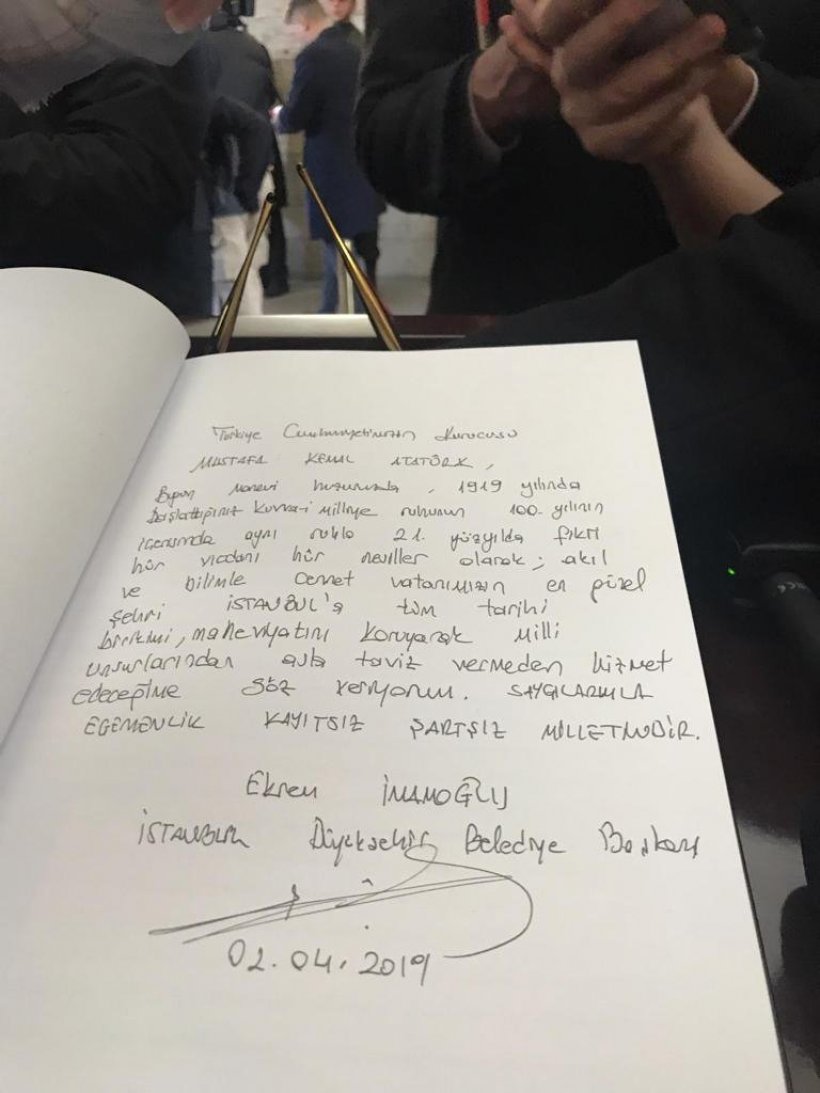 Türkiye Cumhuriyetinizin Kurucusu
MUSTAFA KEMAL ATATÜRK,
Bugün Manevi huzurunuzda, 1919 yılında
Başlattığınız Kuva-i Milliye ruhunun 100. yılının
içerisinde aynı ruhla 21. yüzyılda fikri
hür vicdanı hür nesiller olarak; akıl
ve bilimle cennet vatanımızın en güzel
şehri İSTANBUL'a tüm tarihi
birikimi, maneviyatını koruyarak Milli
unsurlarından asla taviz vermeden hizmet
edeceğime söz veriyorum. SAYGILARIMLA
EGEMENLİK KAYITSIZ ŞARTSIZ MİLLETİNDİR.
Ekrem İMAMOĞLU
İSTANBUL Büyükşehir Belediye Başkanı
02.04.2019